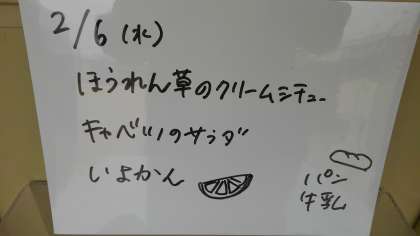 2/6 (水)
ほうれん草のクリームシチュー
キャベツのサラダ
いよかん
パン
牛乳